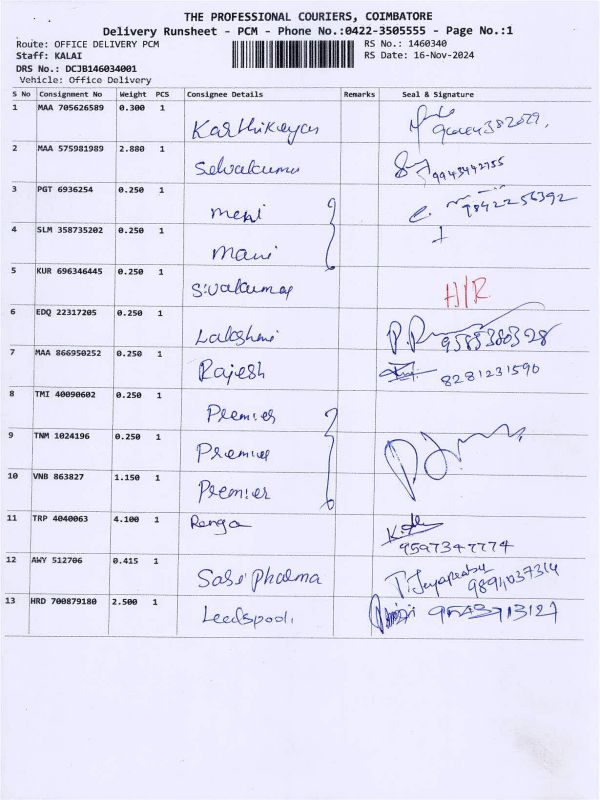 THE PROFESSIONAL COURIERS, COIMBATORE
Delivery Runsheet - PCM - Phone No.:0422-3505555 - Page No.:1
Route: OFFICE DELIVERY PCM
RS No.: 1460340
Staff: KALAI
RS Date: 16-Nov-2024
DRS No.: DCJB146034001
Vehicle: Office Delivery
S No Consignment No Weight PCS Consignee Details Remarks Seal & Signature
1 MAA 705626589 0.300 1 Karthikeyan
2 MAA 575981989 2.880 1 Selvakumar 9943442755
3 PGT 6936254 0.250 1 9842256392
4 SLM 358735202 0.250 1 Mani
5 KUR 696346445 0.250 1 Sivakumar H/R
6 EDQ 22317205 0.250 1 Lakshmi 9585380328
7 MAA 866950252 0.250 1 Rajesh 8281231590
8 TMI 40090602 0.250 1 Premier
9 TNM 1024196 0.250 1 Premier
10 VNB 863827 1.150 1 Premier
11 TRP 4040063 4.100 1 Renga 9597347774
12 AWY 512706 0.415 1 Sasi Pharma
13 HRD 700879180 2.500 1 9543713127